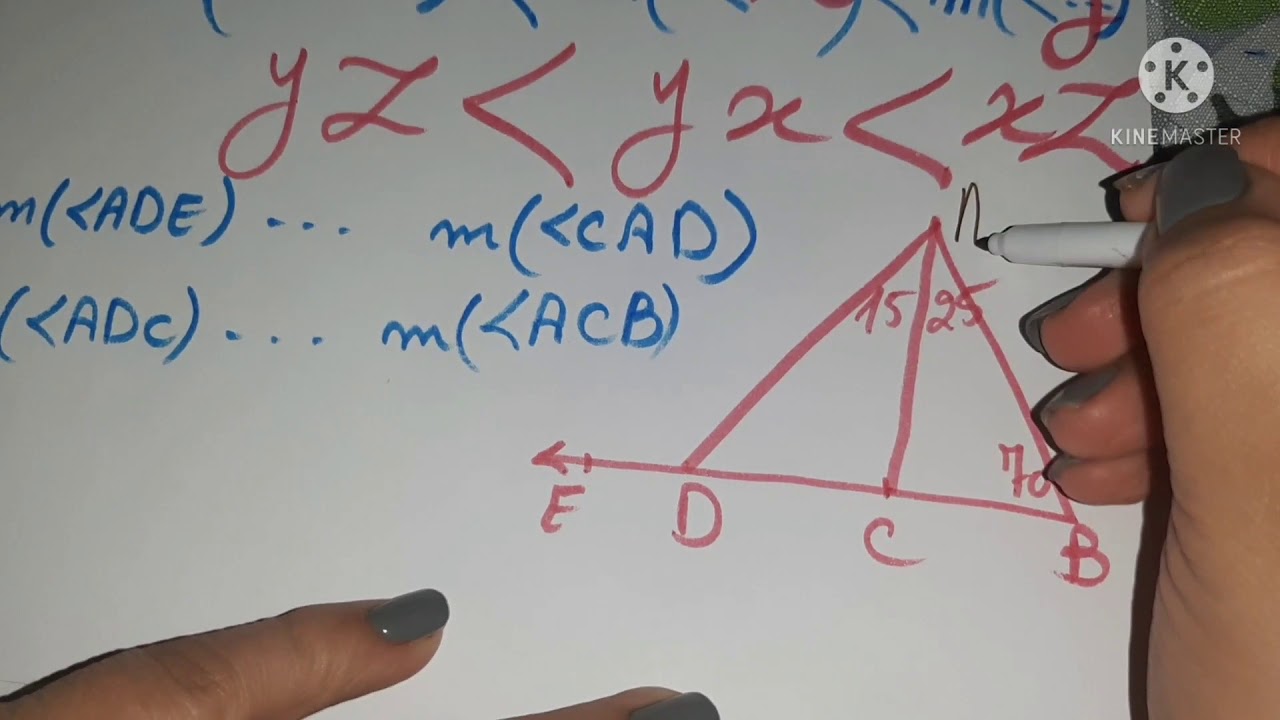 yz < yx < xz
m(<ADE) ... m(<CAD)
(<ADC) ... m(<ACB)
15 25
70
E D C B
K
KINEMASTER